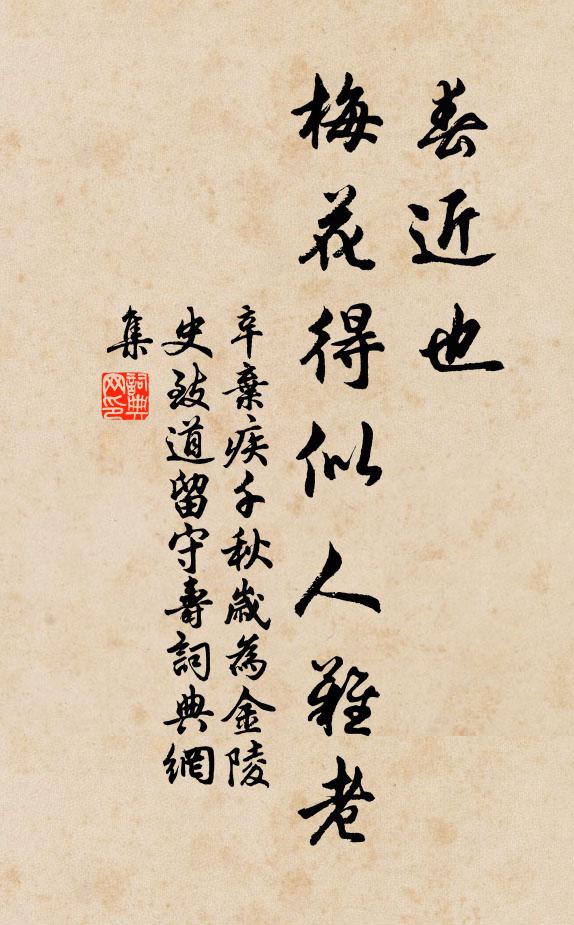 春近也
梅花得似人難老
辛棄疾千秋歲為金陵
史致道留守壽詞典網
集
詞典網印